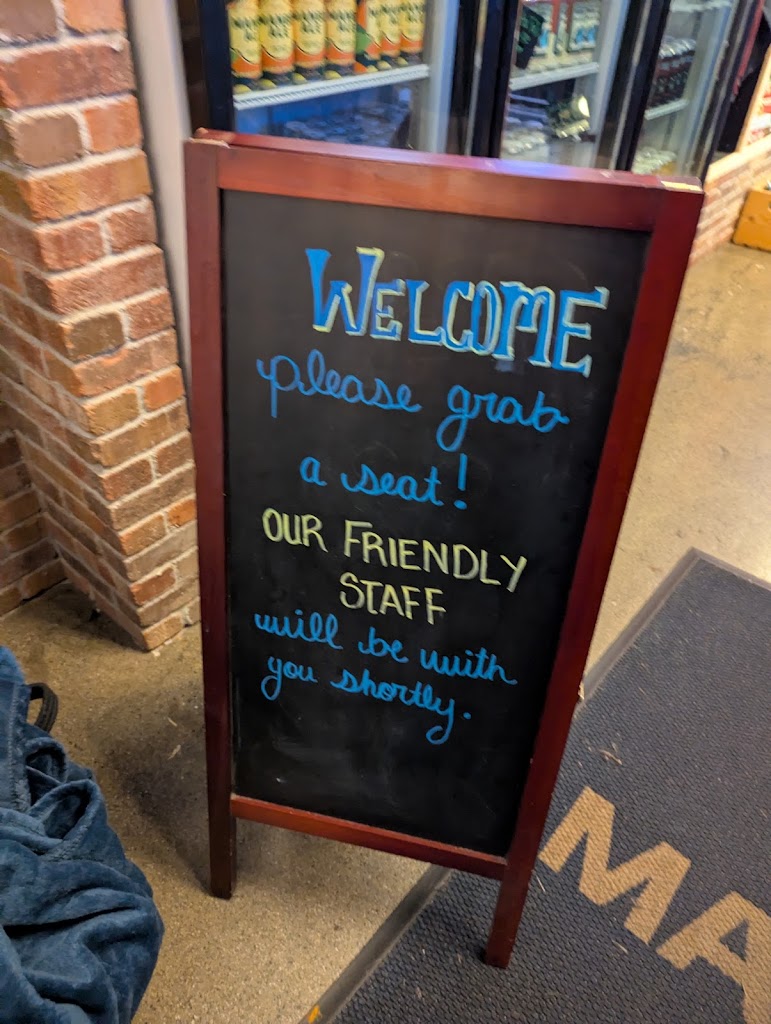 MANDE
ALE
WELCOME
please grab
a seat!
OUR FRIENDLY
STAFF
will be with
you shortly.
MA